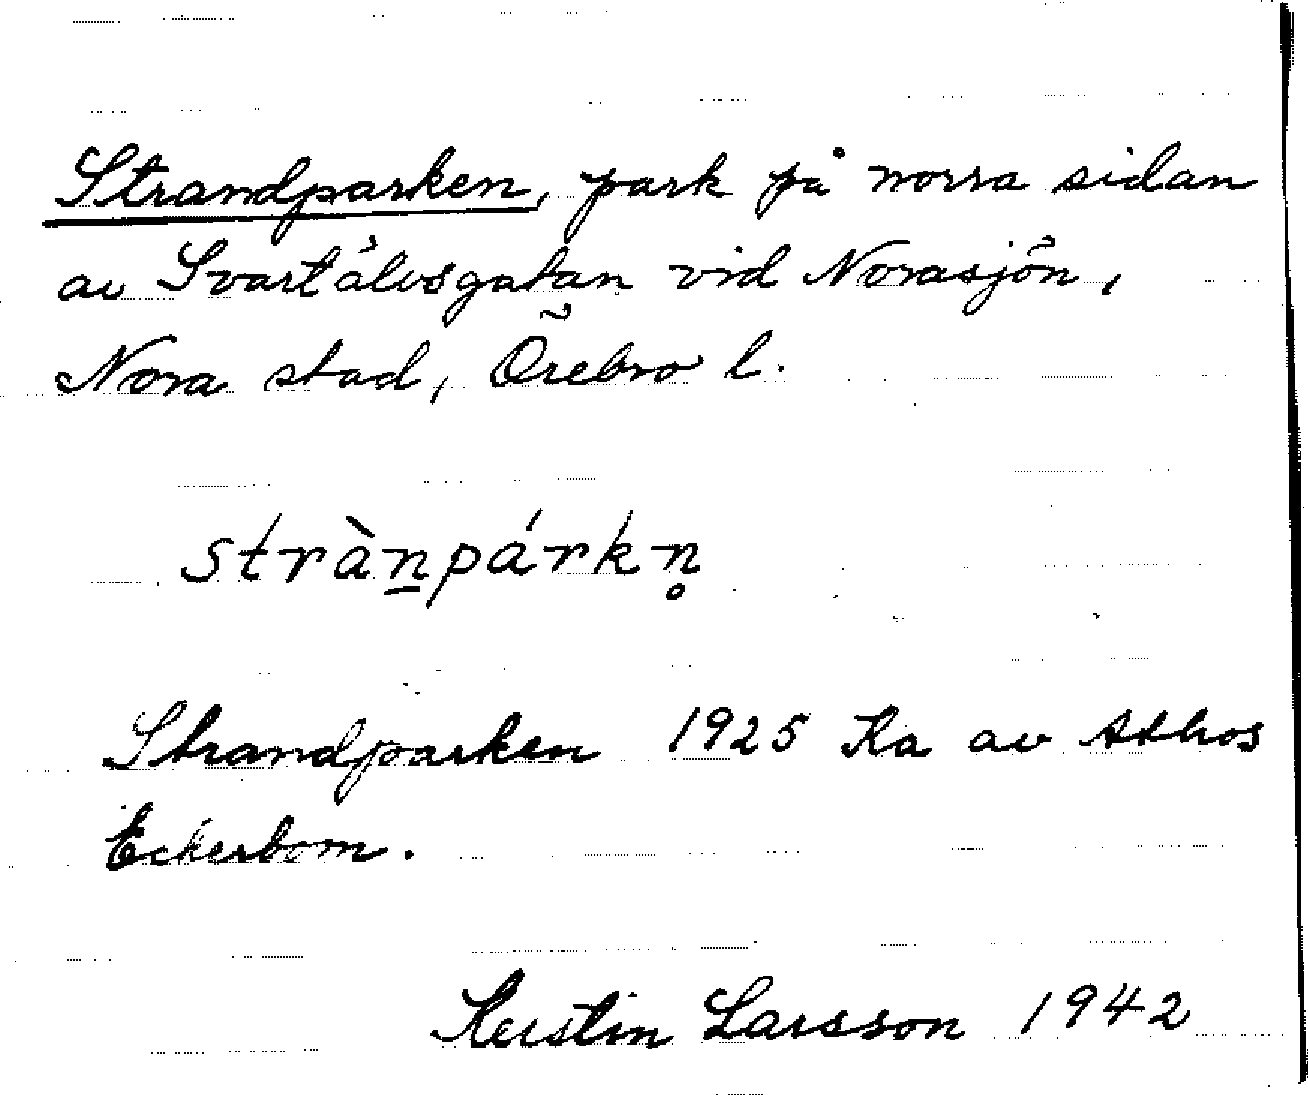 Strandparken, park på norra sidan
av Svartälvsgatan vid Norasjön,
Nora stad, Örebro l.
stràn̲párkn̥
Strandparken 1925 Ka av Athos
Eckerbom.
Kerstin Larsson 1942